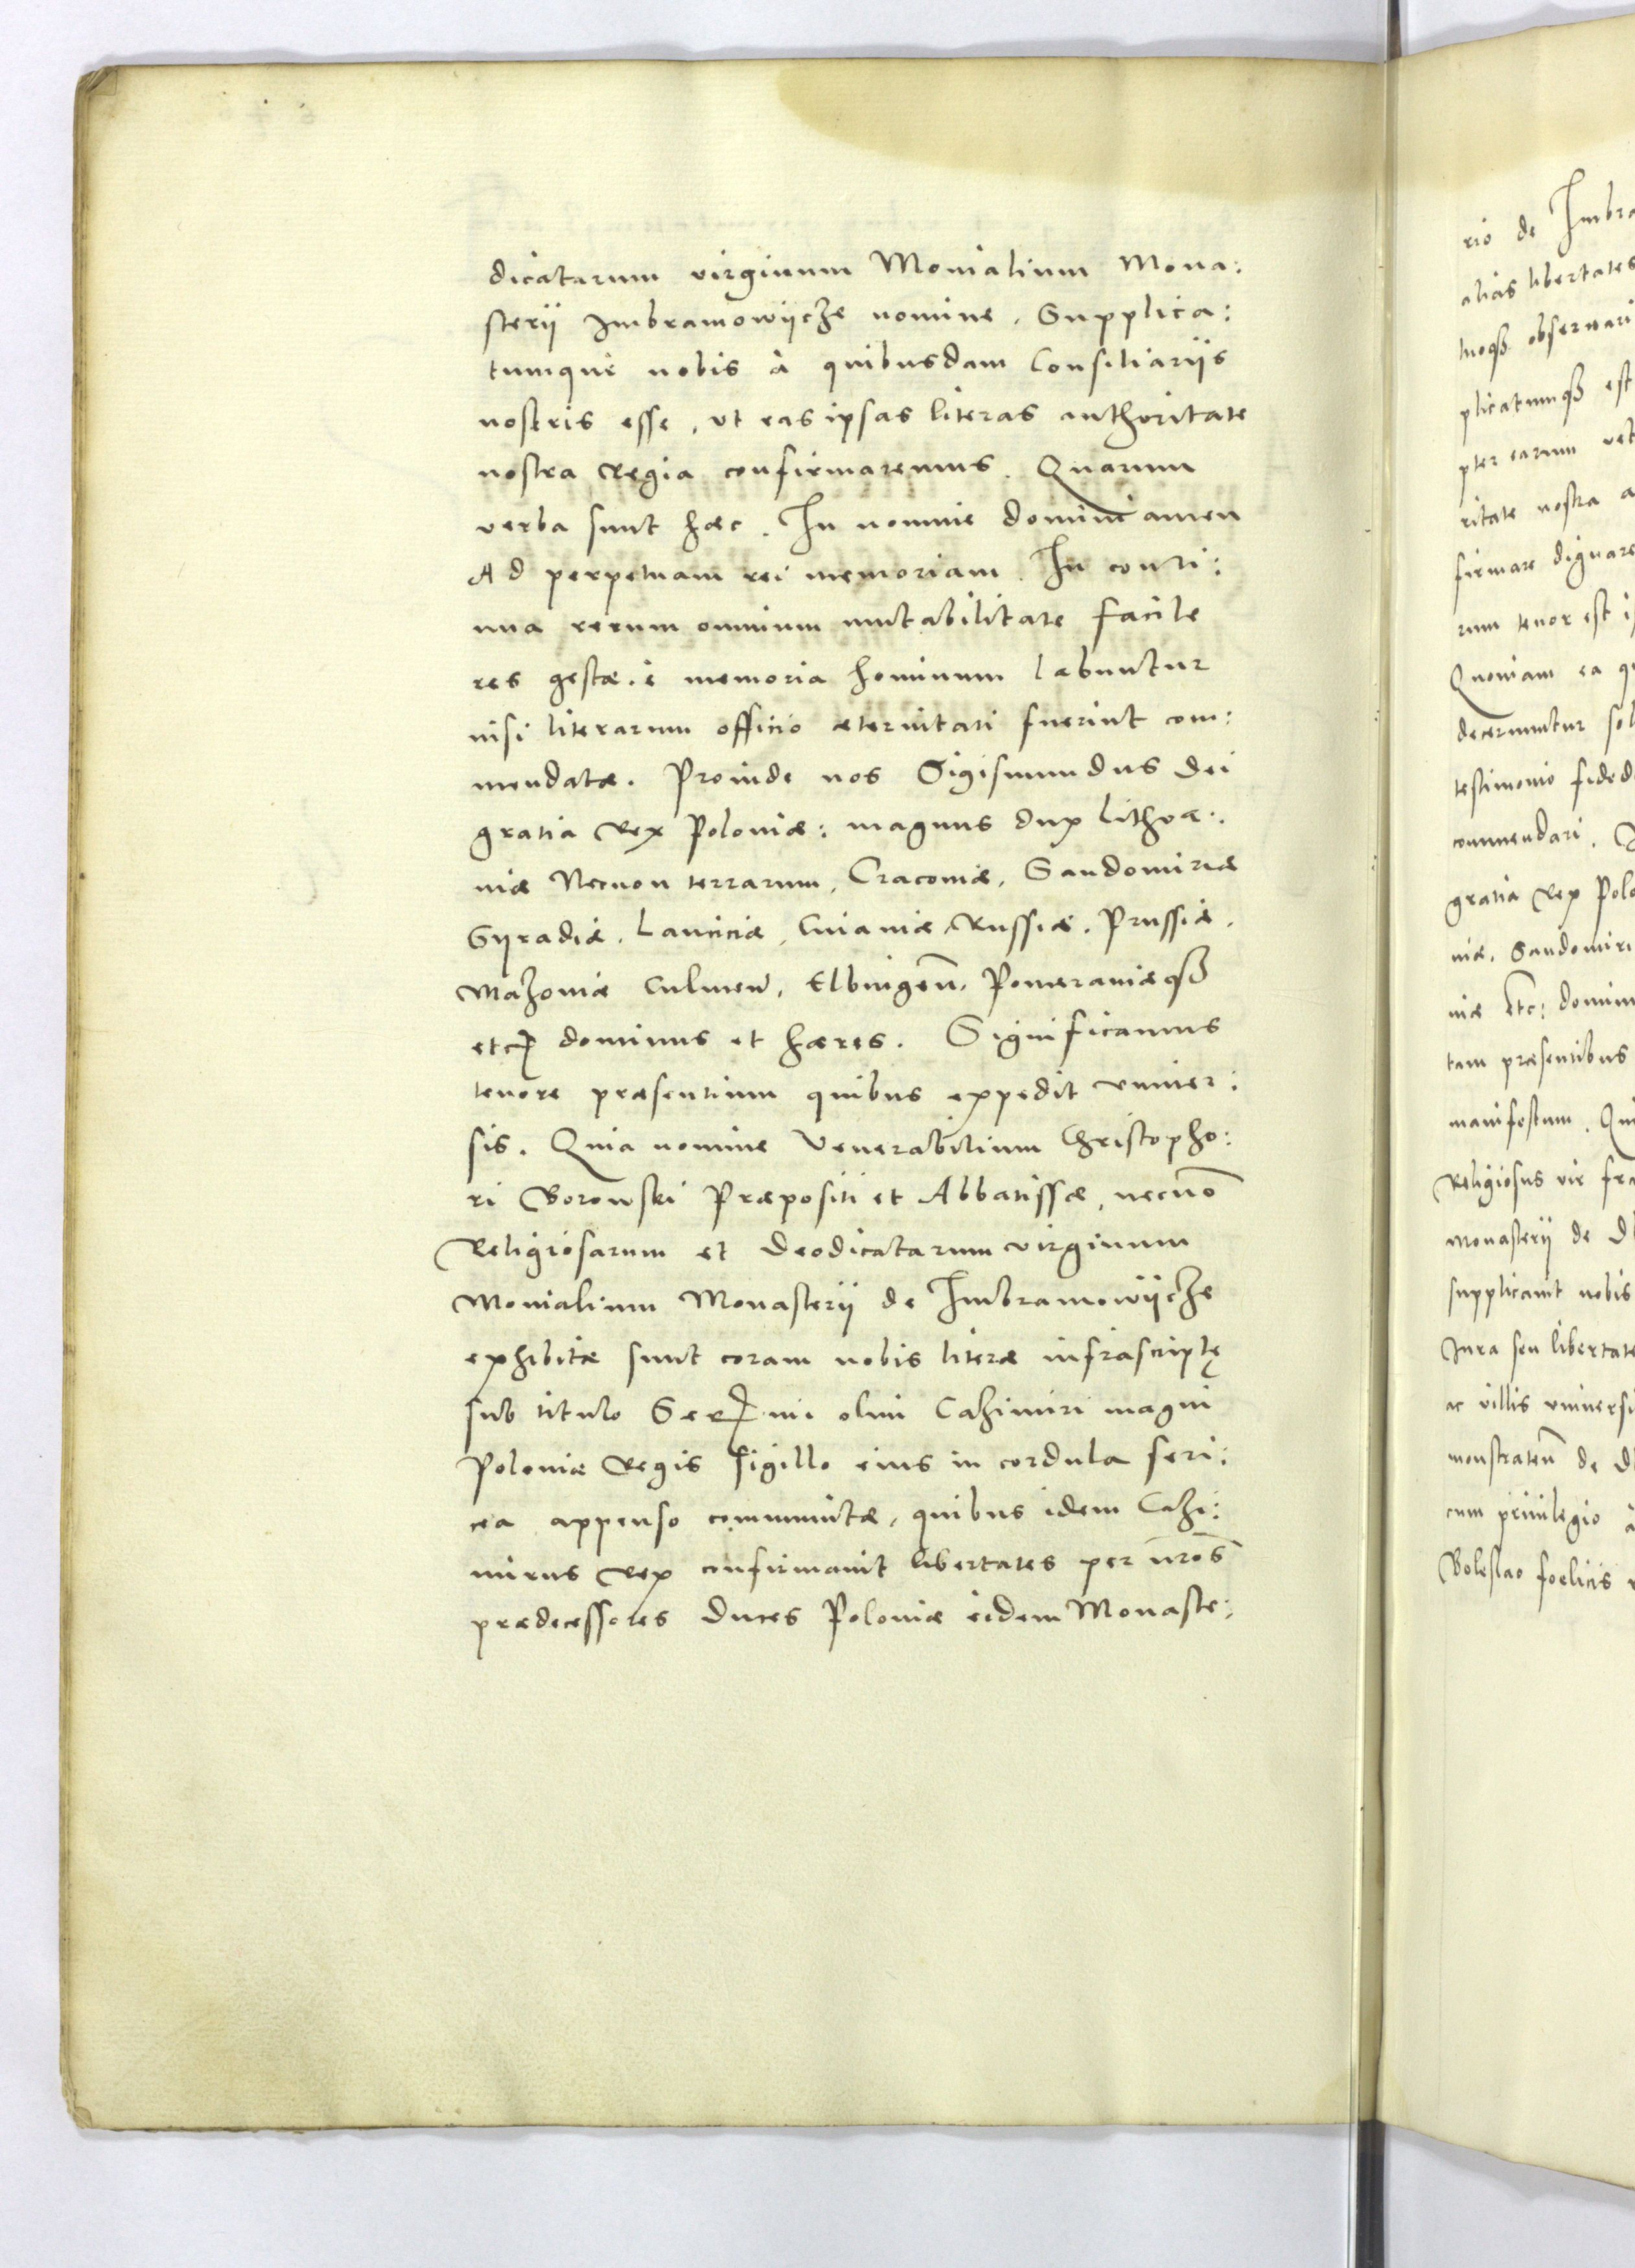 dicatarum virginum Monialium Mona:
sterii Imbramowijcze nomine, Supplica:
tumque nobis à quibusdam Consiliariis
nostris esse, ut eas ipsas literas authoritate
nostra Regia confirmaremus. Quarum
verba sunt hæc. In nomine domini amen
Ad perpetuam rei memoriam. In conti:
nua rerum omnium mutabilitate facile
res gestæ è memoria hominum labuntur
nisi literarum officio æternitati fuerint com:
mendatæ. Proinde nos Sigismundus Dei
gratia Rex Poloniæ: magnus dux Lithva:
niæ Necnon terrarum, Cracoviæ, Sandomiriæ
Syradiæ, Lanciciæ, Cuiaviæ Russiæ, Prussiæ,
Mazoviæ Culmen̄, Elbingen̄, Pomeraniæqꝫ
etc dominus et hæres. Significamus
tenore præsentium quibus expedit univer:
sis. Quia nomine Venerabilium Christopho:
ri Borowski Præpositi et Abbatissæ, necnō
Religiosarum et Deodicatarum virginum
Monialium Monasterii de Imbramowijcze
exhibitæ sunt coram nobis literæ infrascriptę
sub titulo Sermi olim Cazimiri magni
Poloniæ Regis sigillo eius in cordula seri:
cea appenso communitæ, quibus idem Cazi:
mirus Rex confirmavit libertates per nr̄os
prædecessores Duces Poloniæ eidem Monaste:
rio de Imbra
alias libertates
observari
plicatumqꝫ est
pter earum
ritate nostra a
firmare dignare
rum tenor est
Quoniam ea
decernuntur
testimonio
commendari.
gratia Rex Polo
niæ, Sandomiri
niæ etc: domin
tam præsentibus
manifestum. Qui
Religiosus vir fra
Monasterii de
supplicavit nobis
Jura seu libertate
ac villis universi
monstraten̄ de
cum privilegio à
Boleslao foelicis